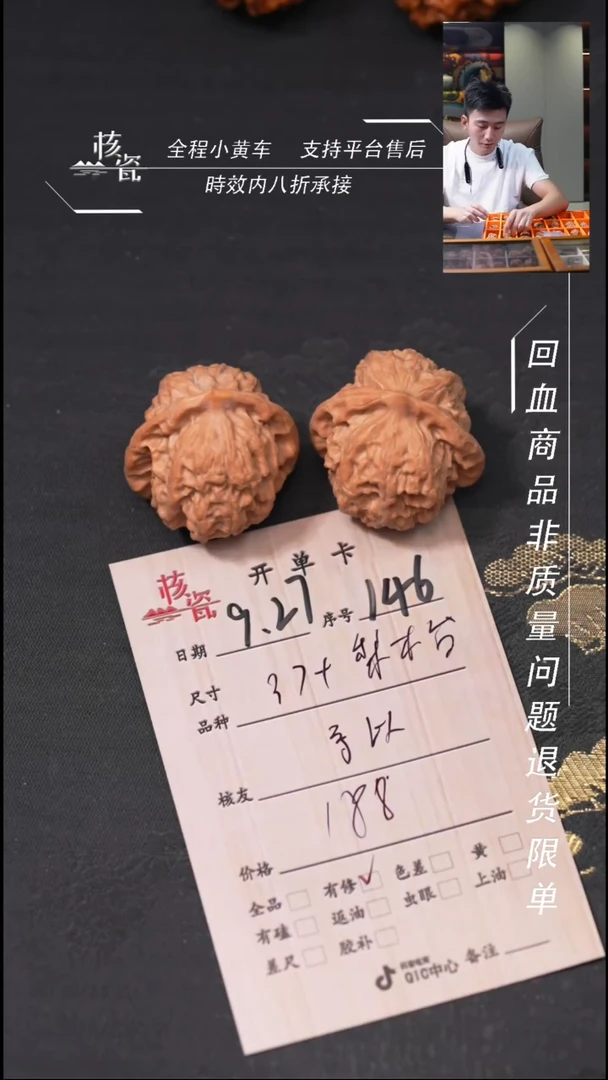 核瓷
全程小黄车 支持平台售后
時效内八折承接
回血商品非质量问题退货限单
核瓷
开单卡
日期 9.27 序号 146
尺寸 37+
品种
核友
188
价格
全品 有修 ✓ 色差 黄
有磕 返油 虫眼 上油
差尺 胶补
QIC中心 备注